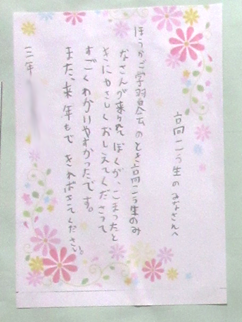 高こう生のみなさんへ
ほうかご学習会のとき高こう生のみ
なさんが来てくれて、ぼくが、こまったと
きにやさしくおしえてくださって
すごくわかりやすかったです。
また、来年もできればきてください。
三年